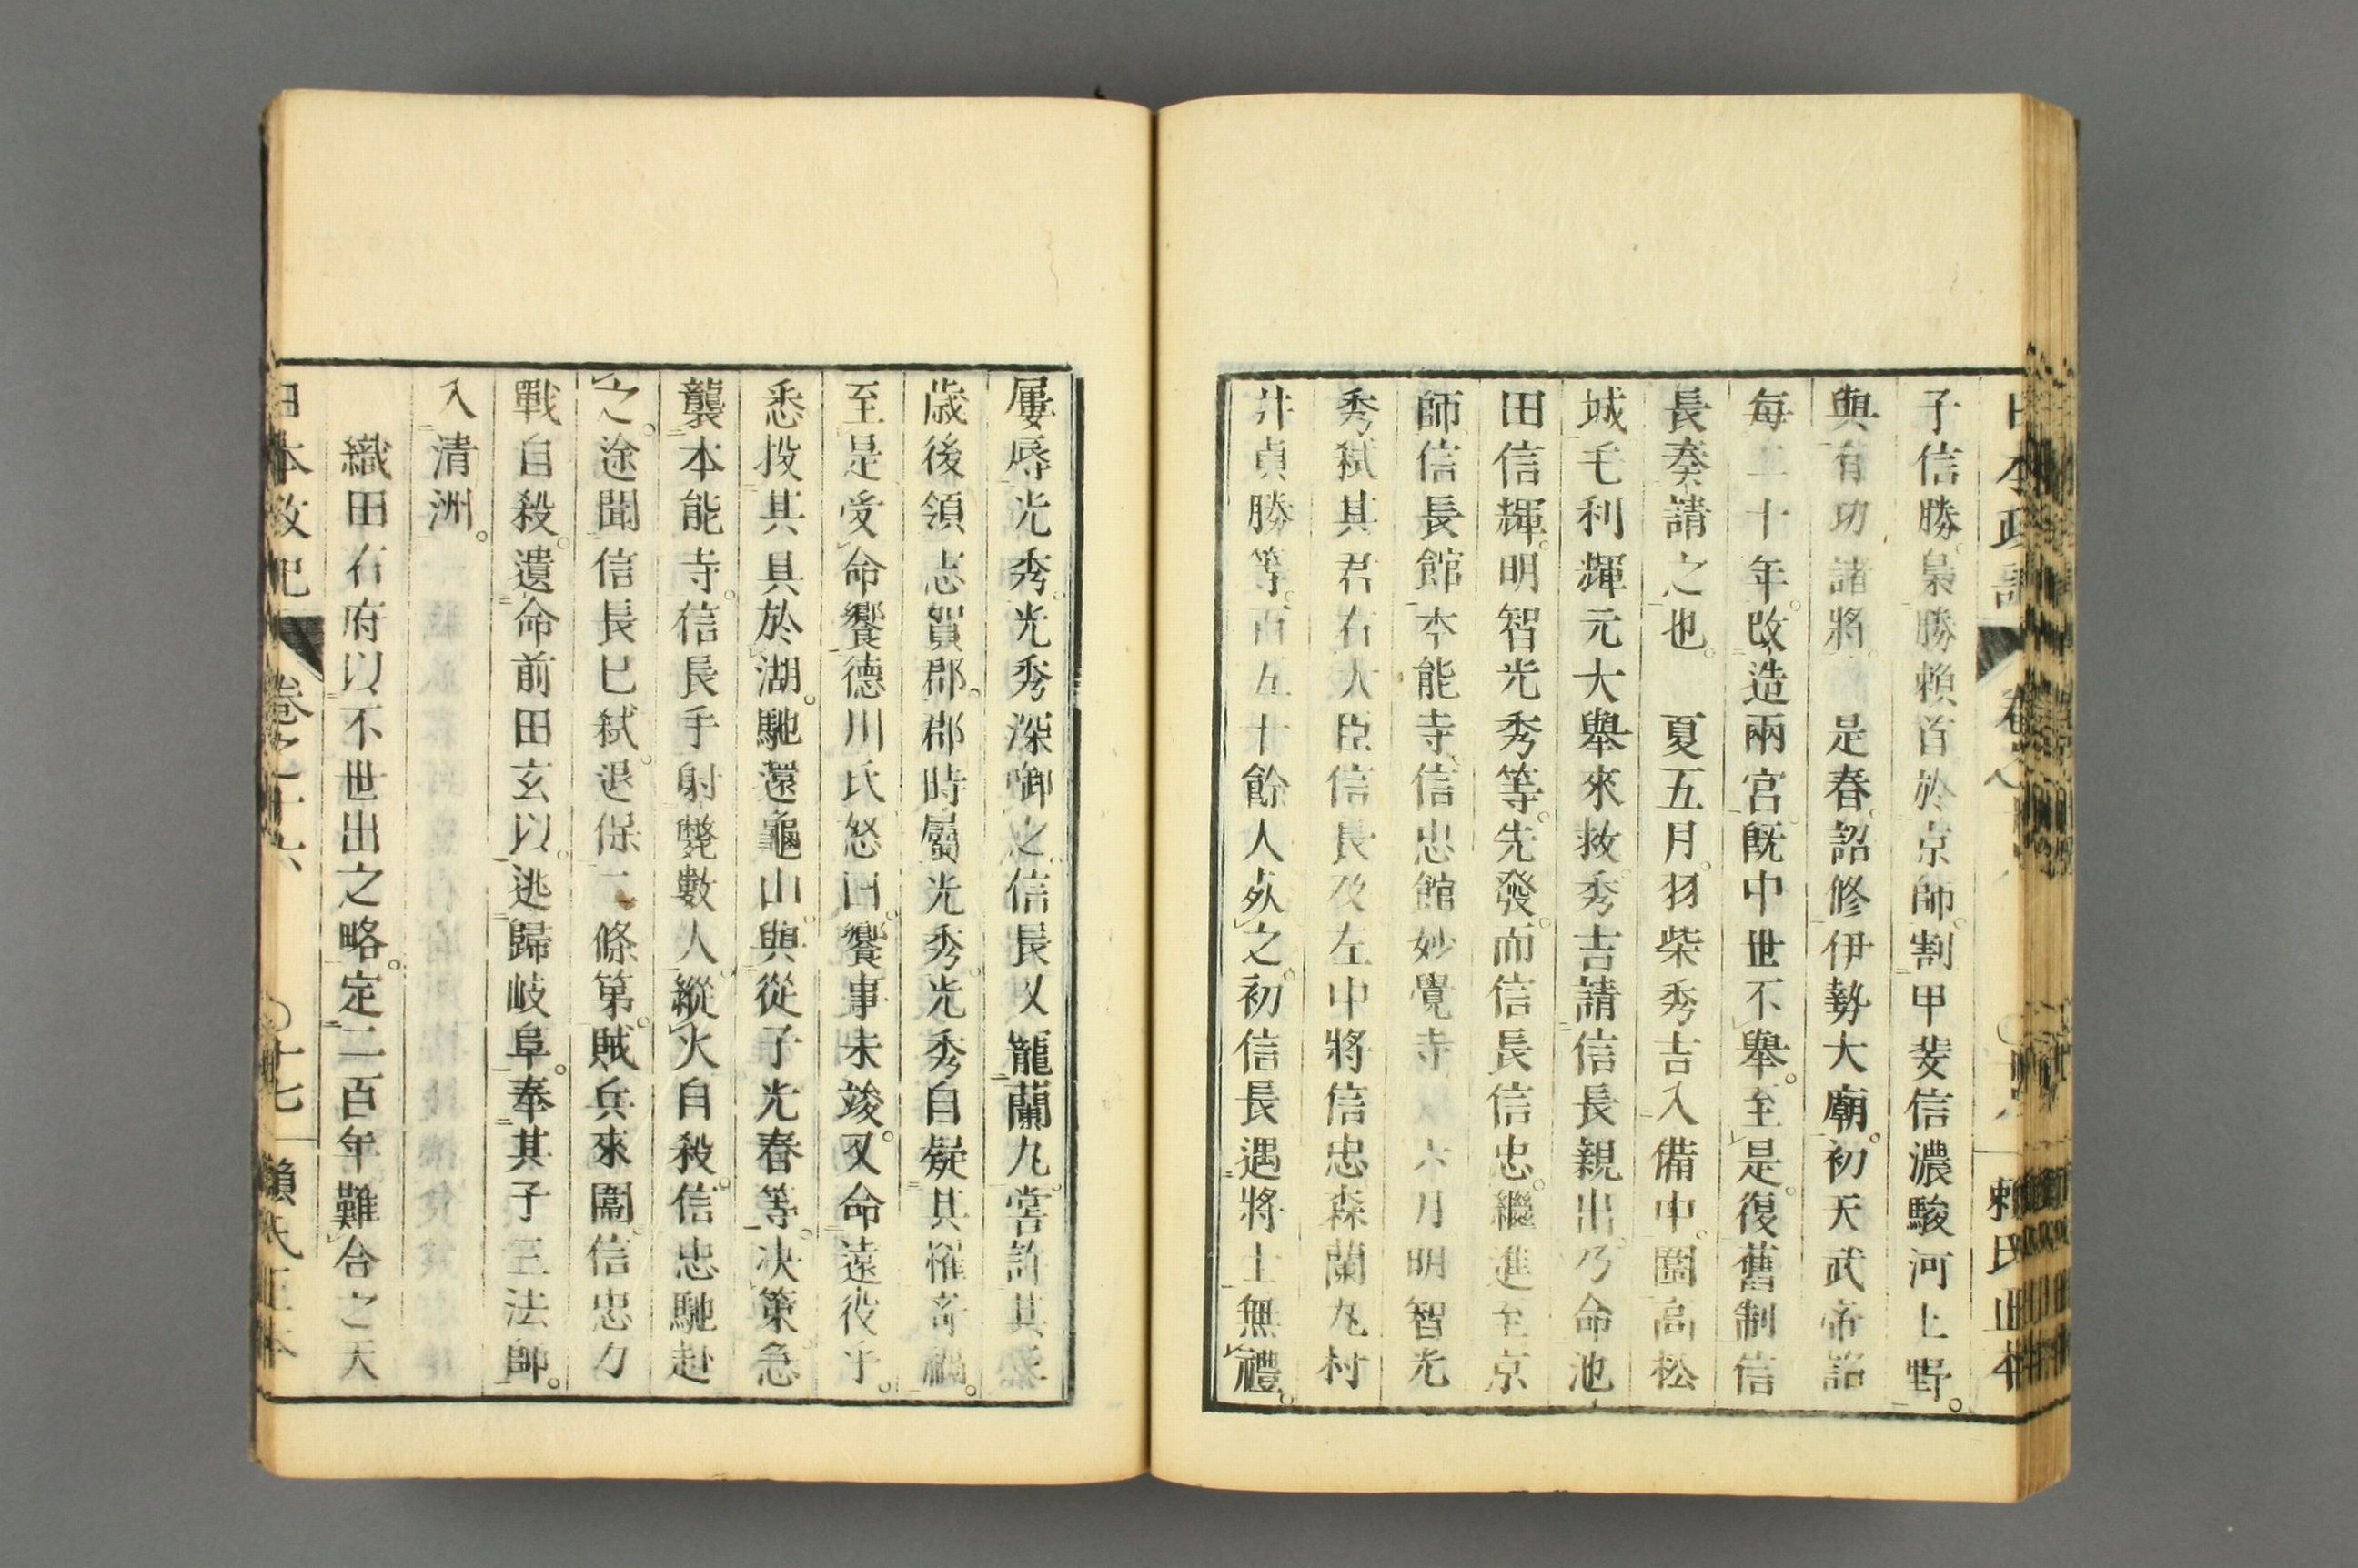 子信勝。梟勝賴首於京師。割甲斐信濃駿河上野。
與有功諸將。是春。詔修伊勢大廟。初天武帝詔
每二十年。改造兩宮。既中世不舉。至是。復舊制信
長奏請之也。夏五月。羽柴秀吉入備中。圍高松
城毛利輝元大舉來救。秀吉請信長親出。乃命池
田信輝。明智光秀等。先發。而信長信忠。繼進至京
師信長館本能寺。信忠館妙覺寺。六月明智光
秀弑其君右大臣信長及左中將信忠森蘭丸村
井貞勝等。百五十餘人死之。初信長遇將士無禮。
屢辱光秀。光秀深啣之信長又寵蘭丸。嘗許其
歲後領志賀郡。郡時屬光秀。光秀自疑其權奇禍。
至是受命饗德川氏怒曰。饗事未竣。又命遠役乎。
悉投其具於湖。馳還龜山與從子光春等。決策。急
襲本能寺。信長手射斃數人縱火自殺。信忠馳赴
之。途聞信長已弑。退保二條第。賊兵來圍。信忠力
戰自殺。遺命前田玄以。逃歸岐阜。奉其子三法師。
入清洲。
織田右府以不世出之略。定二百年難合之天
日本政記 卷之十六 〇十七 賴氏正本